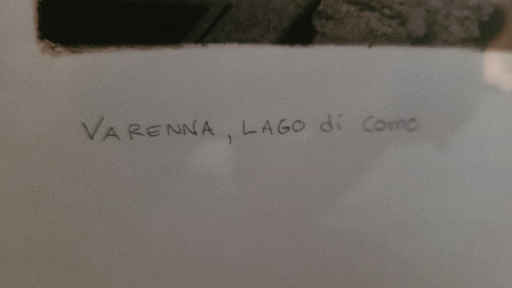 VARENNA, LAGO di Como